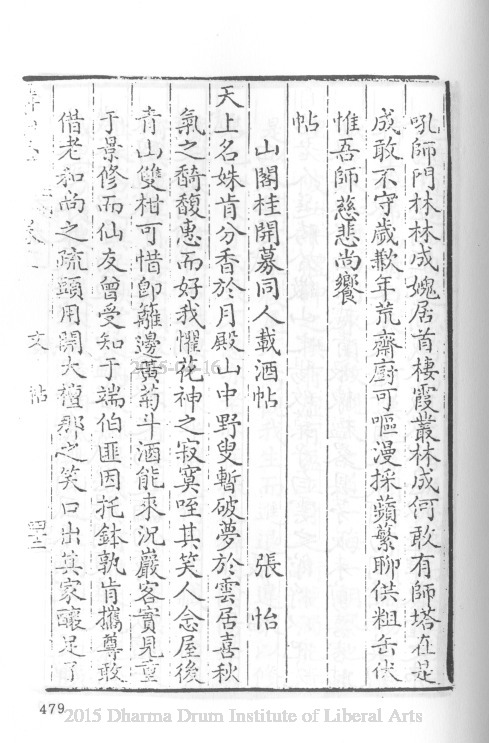 吼師門林林成媿居首棲霞叢林成何敢有師塔在是
成敢不守歲歉年荒齋廚可嘔漫採蘋蘩聊供粗缶伏
惟吾師慈悲尚饗
帖
山閣桂開募同人載酒帖 張怡
天上名姝肯分香於月殿山中野叟暫破夢於雲居喜秋
氣之馥惠而好我懼花神之寂寞咥其笑人念屋後
青山雙柑可惜卽離邊黃菊斗酒能來況巖客實見重
于景修而仙友曾受知于端伯匪因托鉢孰肯攜尊敢
借老和尚之疏頭用開大檀那之笑口出其家釀足了
文 帖
2015-04-16
479
2015 Dharma Drum Institute of Liberal Arts